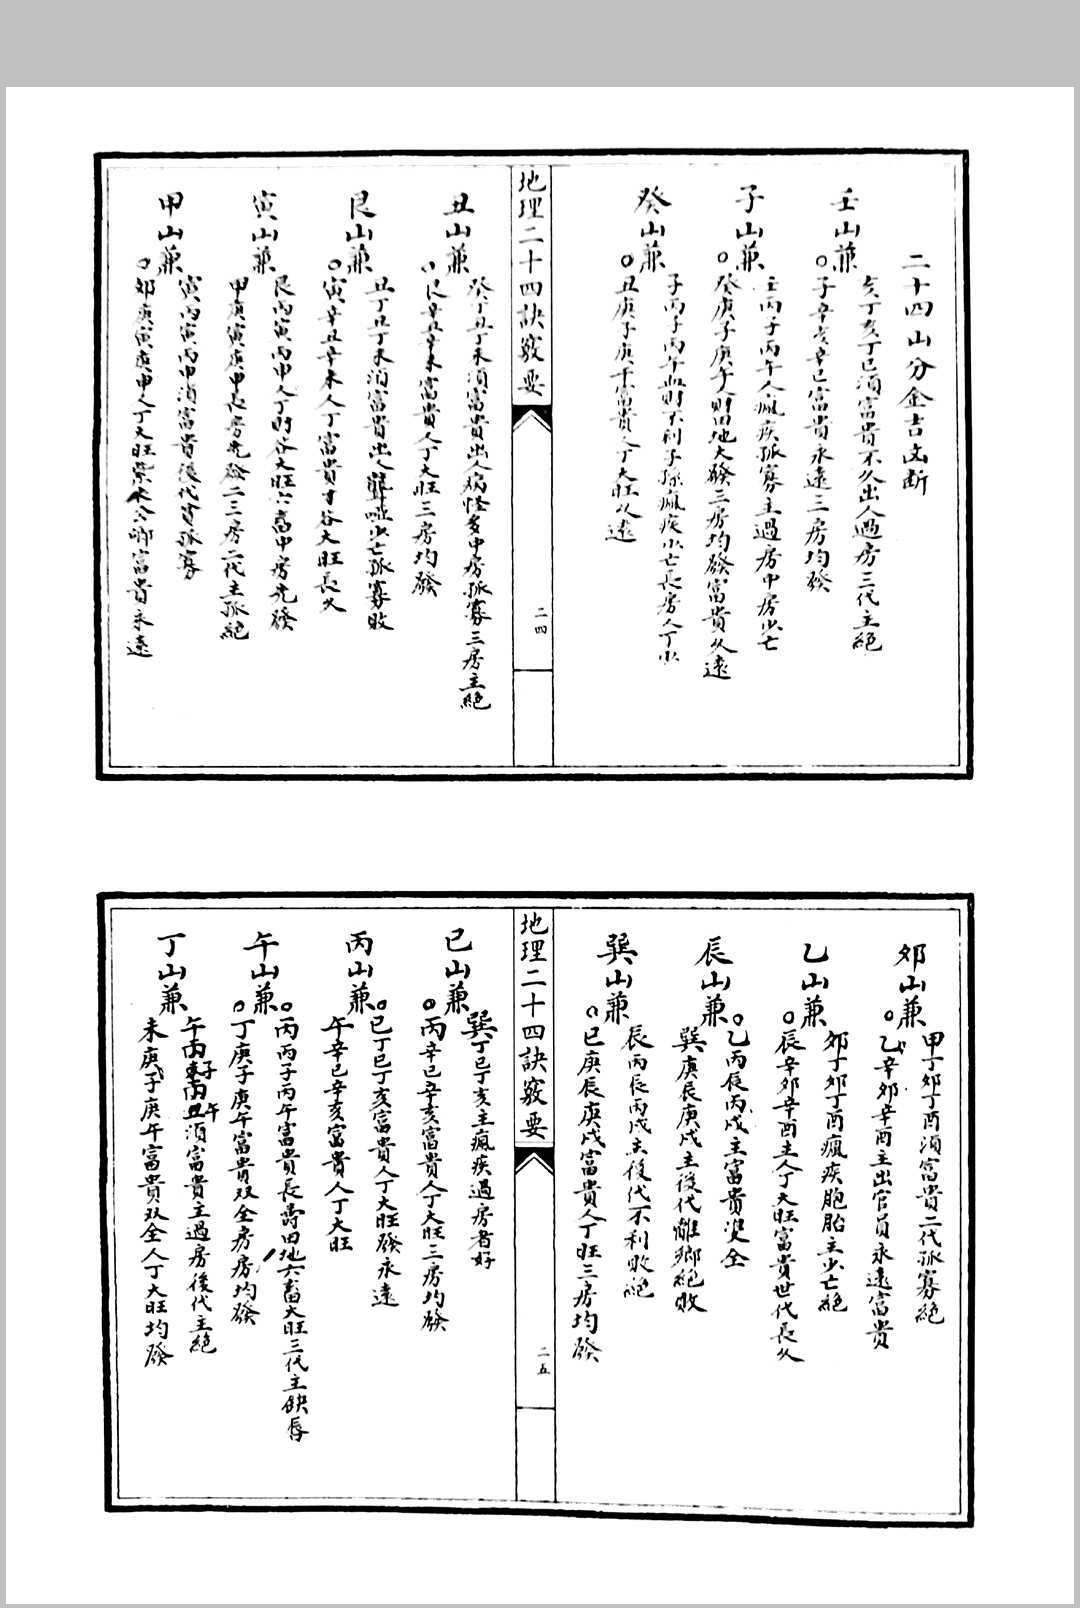 二十四山分金吉凶斷
壬山兼
亥丁亥丁巳須富貴不久出人過房三代主絕
子辛亥辛巳富貴永遠三房均發
子山兼
壬丙子丙午人瘋疾孤寡主過房中房少亡
癸庚子庚午人財田地大發三房均發富貴久遠
癸山兼
子丙子丙午血財不利子孫瘋疾少亡長房人丁少
丑庚子庚午富貴人丁大旺久遠
地理二十四訣竅要
二四
丑山兼
癸丁丑丁未須富貴出人病怪多中房孤寡三房主絕
艮辛丑辛未富貴人丁大旺三房均發
艮山兼
丑丁丑丁未須富貴出人聾啞少亡孤寡敗
寅辛丑辛未人丁富貴才谷大旺長久
寅山兼
艮丙寅丙申人丁財谷大旺六畜中房先發
甲庚寅庚申長房先發二三房二代主孤絕
甲山兼
寅丙寅丙申須富貴後代貧孤寡
卯庚寅庚申人丁大旺榮公卿富貴永遠
卯山兼
甲丁卯丁酉須富貴二代孤寡絕
乙辛卯辛酉主出官員永遠富貴
乙山兼
卯丁卯丁酉瘋疾胞胎主少亡絕
辰辛卯辛酉主人丁大旺富貴世代長久
辰山兼
乙丙辰丙戌主富貴双全
巽庚辰庚戌主後代離鄉絕敗
巽山兼
辰丙辰丙戌主後代不利敗絕
巳庚辰庚戌富貴人丁旺三房均發
地理二十四訣竅要
二五
巳山兼
巽丁巳丁亥主瘋疾過房者好
丙辛巳辛亥富貴人丁大旺三房均發
丙山兼
巳丁巳丁亥富貴人丁大旺發永遠
午辛巳辛亥富貴人丁大旺
午山兼
丙丙子丙午富貴長壽田地六畜大旺三代主缺唇
丁庚子庚午富貴双全房房均發
丁山兼
午丙子丙午須富貴主過房後代主絕
未庚子庚午富貴双全人丁大旺均發